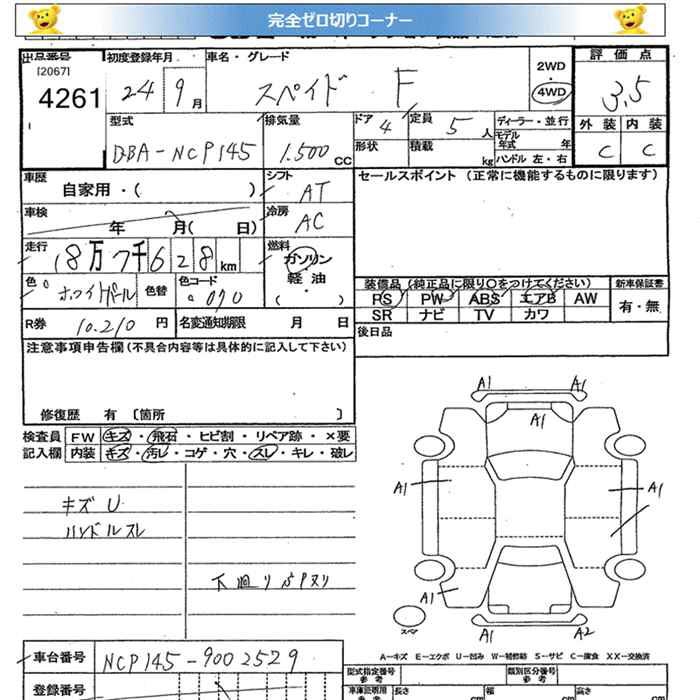 完全ゼロ切りコーナー
出品番号 初度登録年月 車名・グレード 2WD 評価点
[2067]
4261 24 9月 スペイド F 4WD 3.5
型式 排気量 ドア 4 定員 5人 ディーラー・並行 外装 内装
DBA-NCP145 1.500 CC 形状 積載 kg モデル年式 年 C C
ハンドル 左・右
車歴 シフト セールスポイント (正常に機能するものに限ります)
自家用・( ) AT
車検 冷房
年 月( 日) AC
走行 燃料
18万7千628km ガソリン
軽・油
色 色替 色コード ( ) 装備品 (純正品に限り○をつけてください) 新車保証書
ホワイトパール 070 PS PW ABS エアB AW 有・無
SR ナビ TV カワ
R券 10.210円 名変通知期限 月 日 後日品
注意事項申告欄(不具合内容等は具体的に記入して下さい)
修復歴 有 〔箇所 〕
検査員 FW キズ・飛石・ヒビ割・リペア跡・×要
記入欄 内装 キズ・汚レ・コゲ・穴・スレ・キレ・破レ
キズ U
ハンドルスレ
下廻りサビPヌリ
A1 A1
A1
A1 A1
A1
スペア
A1 A2
A-キズ E-エクボ U-凹み W-補修跡 S-サビ C-腐食 XX-交換済
車台番号 NCP145-9002529 型式指定番号 参考 類別区分番号 参考
登録番号 車庫証明用 参考 長さ cm 幅 cm 高さ cm